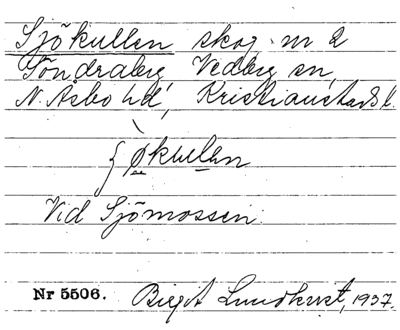 Sjökullen skog. nr 2
Töndraberg, Vedby sn,
N. Åsbo hd, Kristianstads l.
ʃø̀kullen
Vid Sjömossen.
Nr 5506. Birgit Lundkvist, 1937.